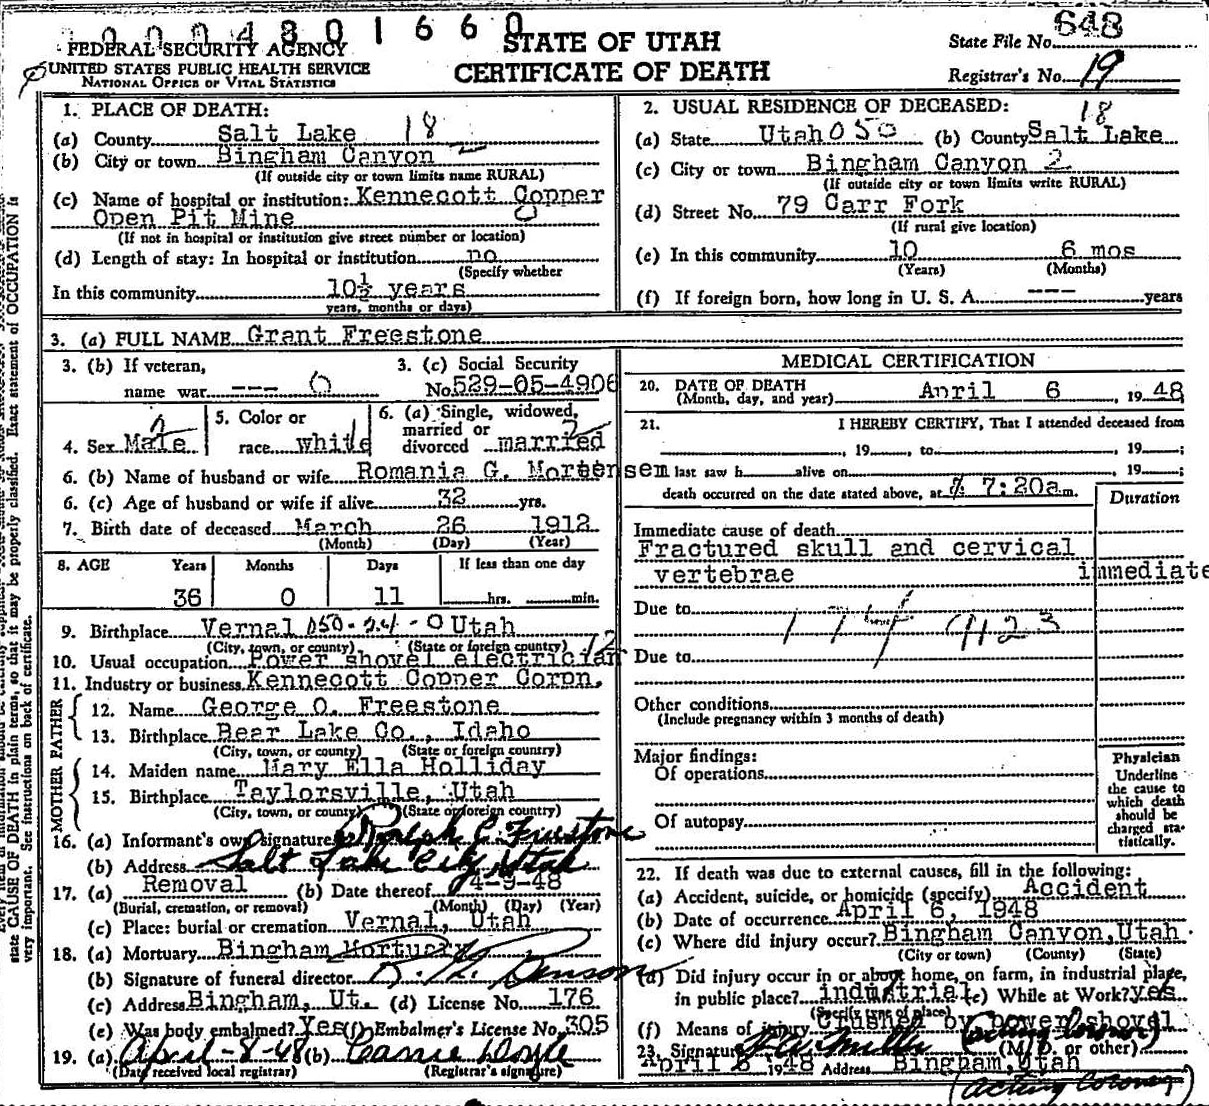 0 0 0 4 8 0 1 6 6 0
FEDERAL SECURITY AGENCY
UNITED STATES PUBLIC HEALTH SERVICE
NATIONAL OFFICE OF VITAL STATISTICS
STATE OF UTAH
CERTIFICATE OF DEATH
State File No. 648
Registrar's No. 19
1. PLACE OF DEATH:
(a) County Salt Lake 18
(b) City or town Bingham Canyon
(If outside city or town limits name RURAL)
(c) Name of hospital or institution: Kennecott Copper
Open Pit Mine 0
(If not in hospital or institution give street number or location)
(d) Length of stay: In hospital or institution no
(Specify whether
In this community 10½ years
years, months or days)
2. USUAL RESIDENCE OF DECEASED:
18
(a) State Utah 050 (b) County Salt Lake
(c) City or town Bingham Canyon 2
(If outside city or town limits write RURAL)
(d) Street No. 79 Carr Fork
(If rural give location)
(e) In this community 10 6 mos
(Years) (Months)
(f) If foreign born, how long in U. S. A. --- years
3. (a) FULL NAME Grant Freestone
3. (b) If veteran,
name war --- 0
3. (c) Social Security
No. 529-05-4906
4. Sex Male
5. Color or
race white
6. (a) Single, widowed,
married or
divorced married
6. (b) Name of husband or wife Romania G. Mortensen
6. (c) Age of husband or wife if alive 32 yrs.
7. Birth date of deceased March 26 1912
(Month) (Day) (Year)
8. AGE Years Months Days If less than one day
36 0 11 hrs. min.
9. Birthplace Vernal Utah
(City, town, or county) (State or foreign country)
10. Usual occupation Power shovel electrician
11. Industry or business Kennecott Copper Corpn.
FATHER
12. Name George O. Freestone
13. Birthplace Bear Lake Co., Idaho
(City, town, or county) (State or foreign country)
MOTHER
14. Maiden name Mary Ella Holliday
15. Birthplace Taylorsville, Utah
(City, town, or county) (State or foreign country)
16. (a) Informant's own signature Ralph C Freestone
(b) Address Salt Lake City, Utah
17. (a) Removal (b) Date thereof 4-9-48
(Burial, cremation, or removal) (Month) (Day) (Year)
(c) Place: burial or cremation Vernal, Utah
18. (a) Mortuary Bingham Mortuary
(b) Signature of funeral director
(c) Address Bingham, Ut. (d) License No. 176
(e) Was body embalmed? Yes (f) Embalmer's License No. 305
19. (a) April-8-48 (b) Carrie Doyle
(Date received local registrar) (Registrar's signature)
MEDICAL CERTIFICATION
20. DATE OF DEATH
(Month, day, and year) April 6, 1948
21. I HEREBY CERTIFY, That I attended deceased from
, 19 , to , 19 ;
last saw h alive on , 19 ;
death occurred on the date stated above, at 7:20a.m.
Duration
Immediate cause of death
Fractured skull and cervical
vertebrae immediate
Due to 174 9123
Due to
Other conditions
(Include pregnancy within 3 months of death)
Major findings:
Of operations
Of autopsy
Physician
Underline
the cause to
which death
should be
charged sta-
tistically.
22. If death was due to external causes, fill in the following:
(a) Accident, suicide, or homicide (specify) Accident
(b) Date of occurrence April 6, 1948
(c) Where did injury occur? Bingham Canyon, Utah
(City or town) (County) (State)
(d) Did injury occur in or about home, on farm, in industrial place,
in public place? industrial (e) While at Work? yes
(Specify type of place)
(f) Means of injury Crushed by power shovel
23. Signature (Acting Coroner)
(M. D. or other)
April 6 1948 Address Bingham, Utah
(Acting Coroner)
state CAUSE OF DEATH in plain terms, so that it may be properly classified. Exact statement of OCCUPATION is
very important. See instructions on back of certificate.